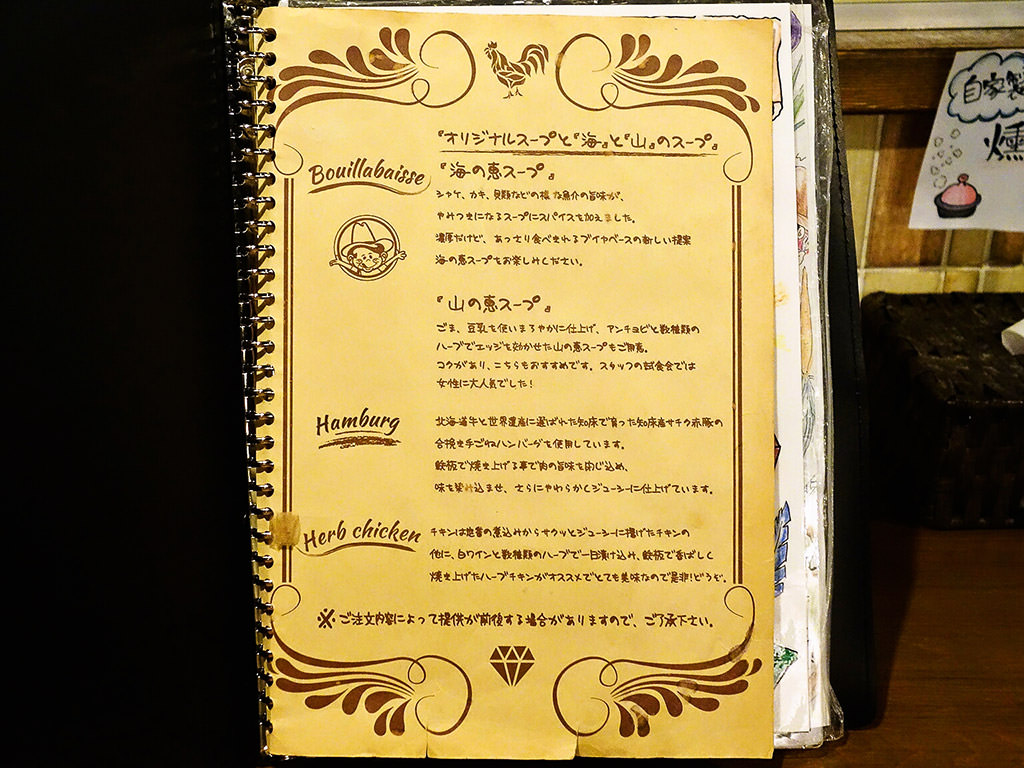 『オリジナルスープと『海』と『山』のスープ』
Bouillabaisse
『海の恵スープ』
シャケ、カキ、貝類などの様々な魚介の旨味が、
やみつきになるスープにスパイスを加えました。
濃厚だけど、あっさり食べきれるブイヤベースの新しい提案
海の恵スープをお楽しみください。
『山の恵スープ』
ごま、豆乳を使いまろやかに仕上げ、アンチョビと数種類の
ハーブでエッジを効かせた山の恵スープもご用意。
コクがあり、こちらもおすすめです。スタッフの試食会では
女性に大人気でした!
Hamburg
北海道牛と世界遺産に選ばれた知床で育った知床産サチク赤豚の
合挽き手ごねハンバーグを使用しています。
鉄板で焼き上げる事で肉の旨味を閉じ込め、
味を染み込ませ、さらにやわらかくジューシーに仕上げています。
Herb chicken
チキンは定番の煮込みからサクッとジューシーに揚げたチキンの
他に、白ワインと数種類のハーブで一日漬け込み、鉄板で香ばしく
焼き上げたハーブチキンがオススメでとても美味なので是非!どうぞ。
※ご注文内容によって提供が前後する場合がありますので、ご了承下さい。
自家製
燻